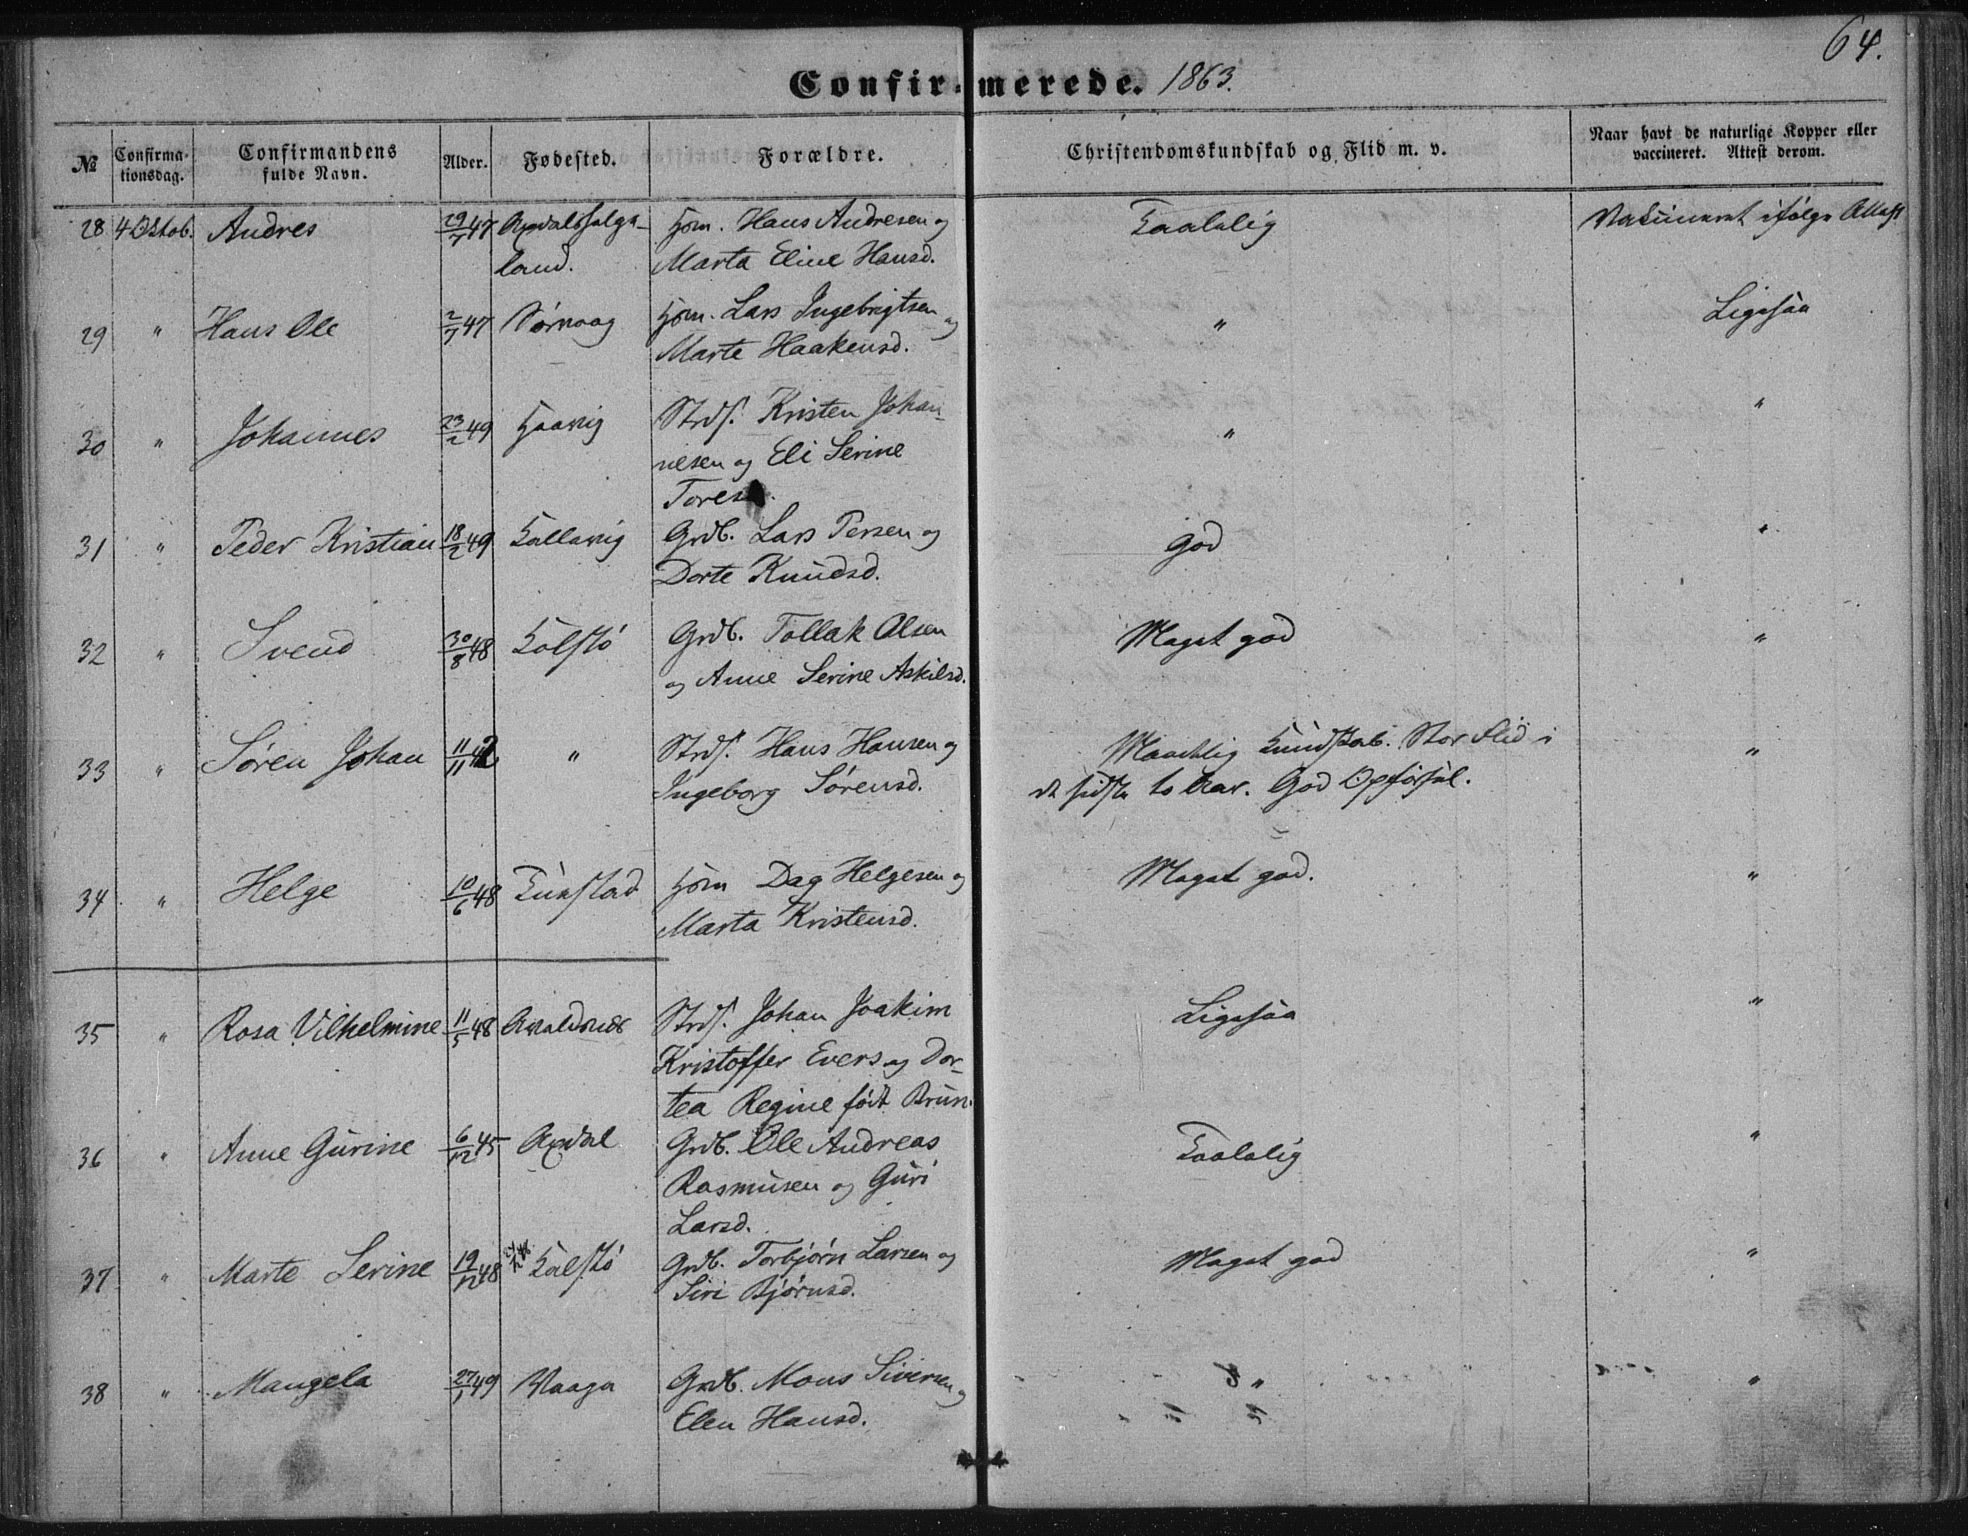 64.
Confir- merede. 1863.
№ Confirma-tionsdag. Confirmandens fulde Navn. Alder. Fødested. Forældre. Christendomskundskab og Flid m. v. Naar havt de naturlige Kopper eller vaccineret. Attest derom.
28 4 Oktob. Andres 29/7 47 Hjm. Hans Andresen og Taalelig Vaksineret ifølge Attest
land. Marta Eline Hansd.
29 " Hans Ole 2/7 47 Sørvaag Hjm. Lars Ingebrigtsen og " Ligesaa
Marte Haakensd.
30 " Johannes 23/2 49 Haavig Strds. Kristen Johan- " "
nesen og Eli Serine
Tores
31 " Peder Kristian 18/2 49 Kallavig Grdb. Lars Persen og God "
Dorte Knudsd.
32 " Svend 30/8 48 Kolstø Grdb. Tollak Olsen Meget god "
og Anne Serine Askilsd.
33 " Søren Johan 11/11 42 " Strds. Hans Hansen og Maadelig Kundskab. Stor Flid i "
Ingeborg Sørensd. de sidste to Aar. God Opførsel.
34 " Helge 10/6 48 Hjm Dag Helgesen og Meget god. "
Marta Kristensd.
35 " Rosa Vilhelmine 11/5 48 Avaldsnes Strds. Johan Joakim Ligesaa "
Kristoffer Evers og Dor-
tea Regine født Brun.
36 " Anne Gurine 6/12 45 Axdal Grdb. Ole Andreas Taalelig "
Rasmusen og Guri
Larsd.
37 " Marte Serine 19/12 48 Kolstø Grdb. Torbjørn Larsen og Meget god "
Siri Bjørnsd.
38 " Mangela 27/1 49 Vaage Grdb. Mons Siversen og " "
Elen Hansd.